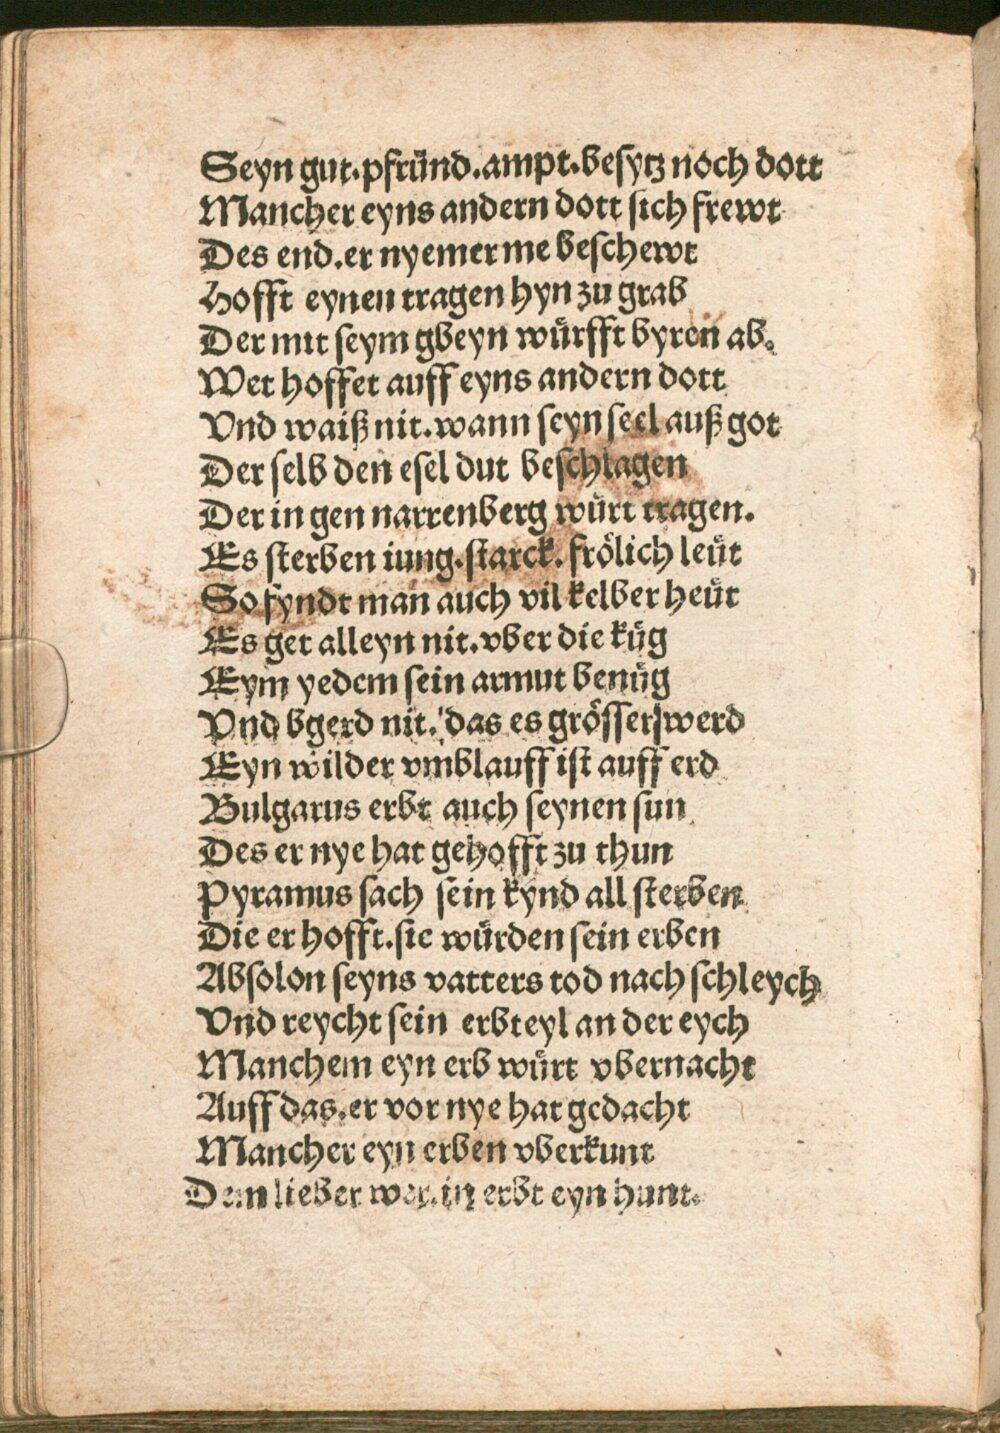 Seyn gut.pfründ.ampt.besytz noch dott
Mancher eyns andern dott sich frewt
Des end.er nyemer me beschewt
Hofft eynen tragen hyn zu grab
Der mit seym gbeyn würfft byren ab.
Wer hoffet auff eyns andern dott
Vnd waiß nit.wann seyn seel auß got
Der selb den esel dut beschlagen
Der in gen narrenberg würt tragen.
Es sterben iung.starck.frölich leüt
So fyndt man auch vil kelber heüt
Es get alleyn nit.vber die küg
Eym yedem sein armut benüg
Vnd bgerd nit.das es grösser werd
Eyn wilder vmblauff ist auff erd
Bulgarus erbt auch seynen sun
Des er nye hat gehofft zu thun
Pyramus sach sein kynd all sterben
Die er hofft.sie würden sein erben
Absolon seyns vatters tod nach schleych
Vnd reycht sein erbteyl an der eych
Manchem eyn erb würt vbernacht
Auff das.er vor nye hat gedacht
Mancher eyn erben vberkunt
Dem lieber wer.in erbt eyn hunt.